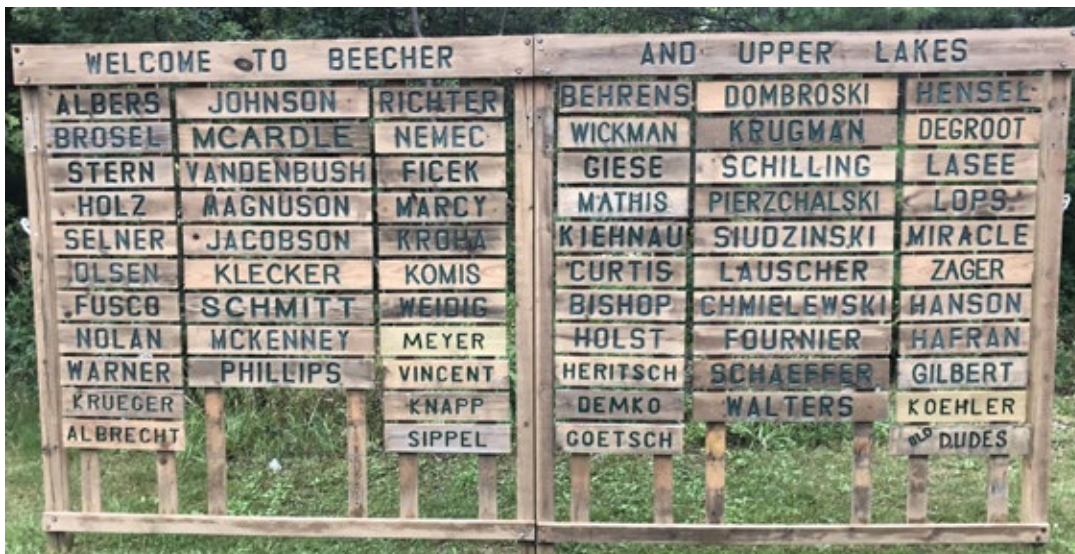 WELCOME TO BEECHER
ALBERS
BROSEL
STERN
HOLZ
SELNER
OLSEN
FUSCO
NOLAN
WARNER
KRUEGER
ALBRECHT
JOHNSON
MCARDLE
VANDENBUSH
MAGNUSON
JACOBSON
KLECKER
SCHMITT
MCKENNEY
PHILLIPS
RICHTER
NEMEC
FICEK
MARCY
KROHA
KOMIS
WEIDIG
MEYER
VINCENT
KNAPP
SIPPEL
AND UPPER LAKES
BEHRENS
WICKMAN
GIESE
MATHIS
KIEHNAU
CURTIS
BISHOP
HOLST
HERITSCH
DEMKO
GOETSCH
DOMBROSKI
KRUGMAN
SCHILLING
PIERZCHALSKI
SIUDZINSKI
LAUSCHER
CHMIELEWSKI
FOURNIER
SCHAEFFER
WALTERS
HENSEL
DEGROOT
LASEE
LOPS
MIRACLE
ZAGER
HANSON
HAFRAN
GILBERT
KOEHLER
OLD DUDES